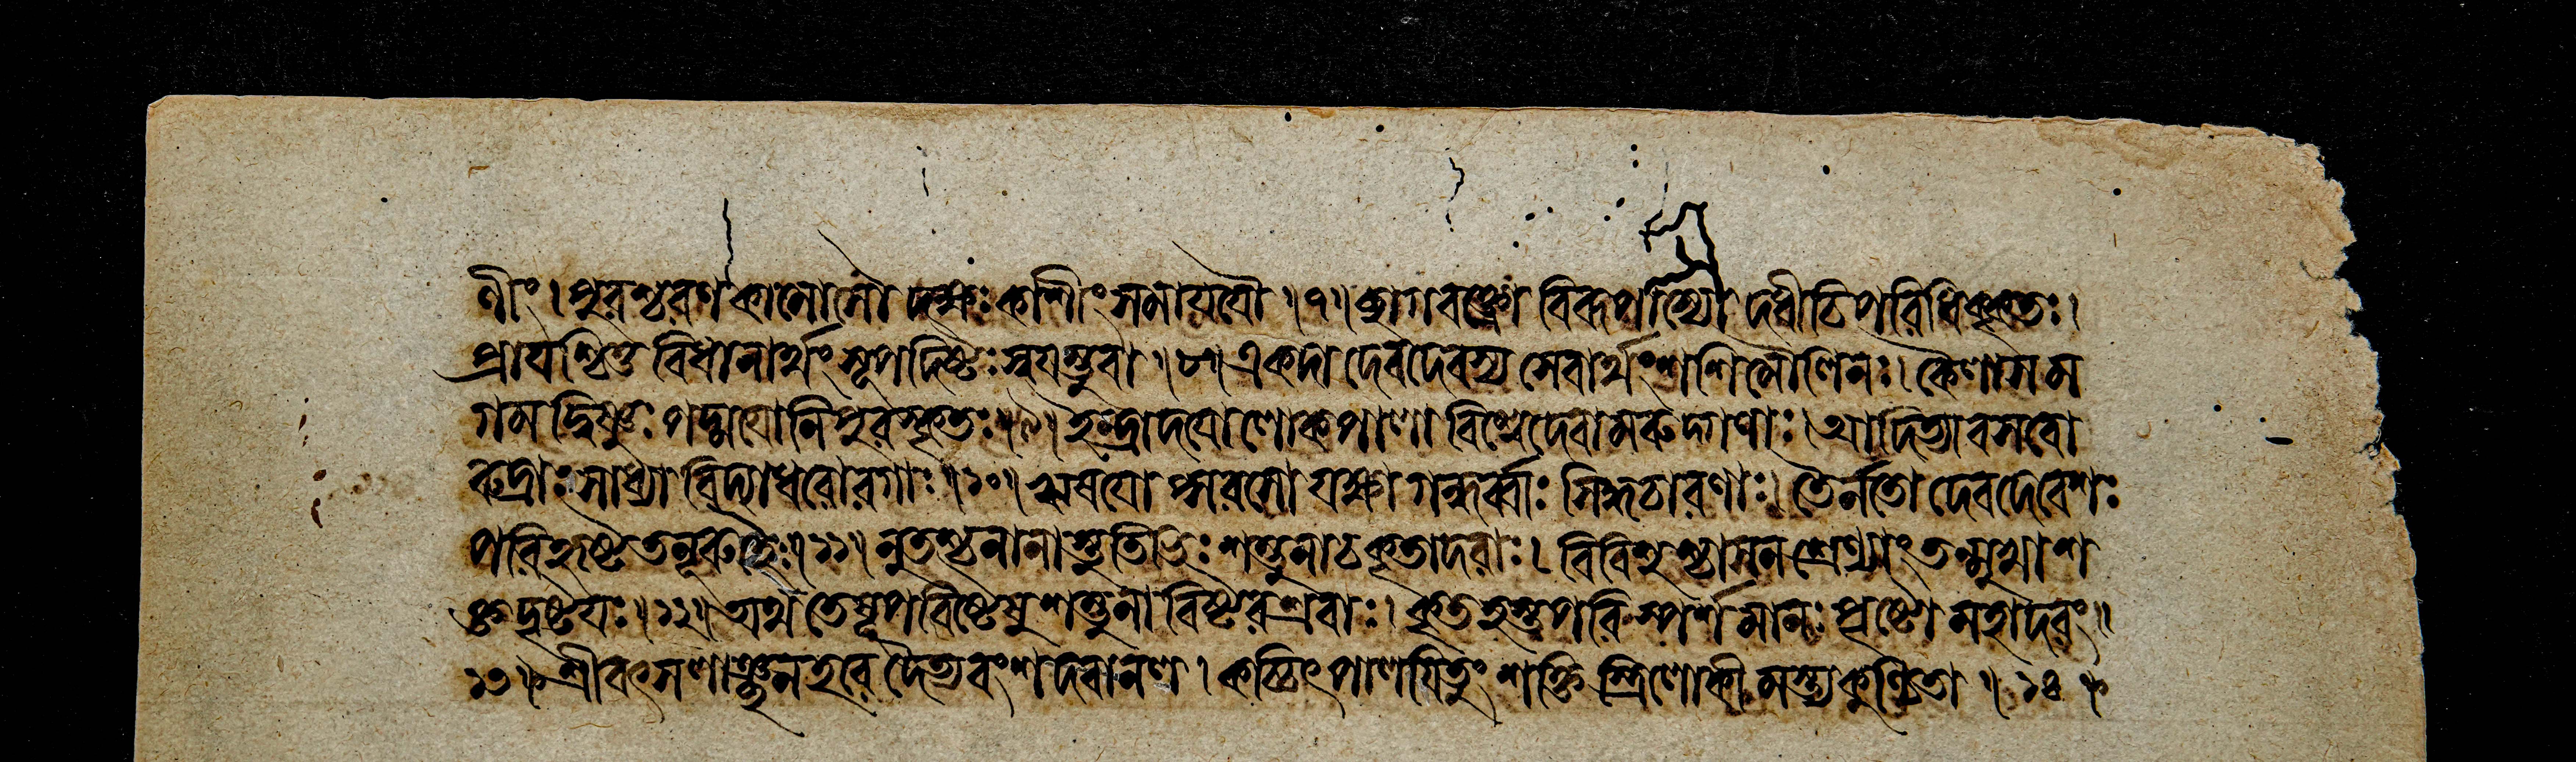 ণীং। পুরশ্চরণকামোসৌ দক্ষঃ কাশীং সমাযযৌ ॥৭॥ ছাগবক্ত্রো বিরূপাস্যো দধীচিপরিধিক্কৃতঃ।
প্রাযশ্চিত্তবিধানার্থং সূপদিষ্টঃ স্বযম্ভুবা ॥৮॥ একদা দেবদেবস্য সেবার্থং শশিমৌলিনঃ। কৈলাসম
গমদ্বিষ্ণুঃ পদ্মযোনিপুরস্কৃতঃ ॥৯॥ ইন্দ্রাদযো লোকপালা বিশ্বেদেবা মরুদ্গণাঃ। আদিত্যা বসবো
রুদ্রাঃ সাধ্যা বিদ্যাধরোরগাঃ ॥১০॥ ঋষযোপ্সরসো যক্ষা গন্ধর্ব্বাঃ সিদ্ধচারণাঃ। তৈর্নতো দেবদেবেশঃ
পরিহৃষ্টতনূরুহৈঃ ॥১১॥ নুতশ্চ নানাস্তুতিভিঃ শম্ভুনাচ কৃতাদরাঃ। বিবিশুশ্চাসনশ্রেণ্যাং তন্মুখাশ
ক্তদৃষ্টযঃ ॥১২॥ অথ তেষূপবিষ্টেষু শম্ভুনা বিষ্টরশ্রবাঃ। কৃতহস্তপরিস্পর্শমানঃ পৃষ্টো মহাদরং॥
১৩॥ শ্রীবৎসলাঞ্ছন হরে দৈত্যবংশদবানল। কচ্চিৎ পালযিতুং শক্তিস্ত্রিলোকীমস্ত্যকুণ্ঠিতা ॥১৪॥